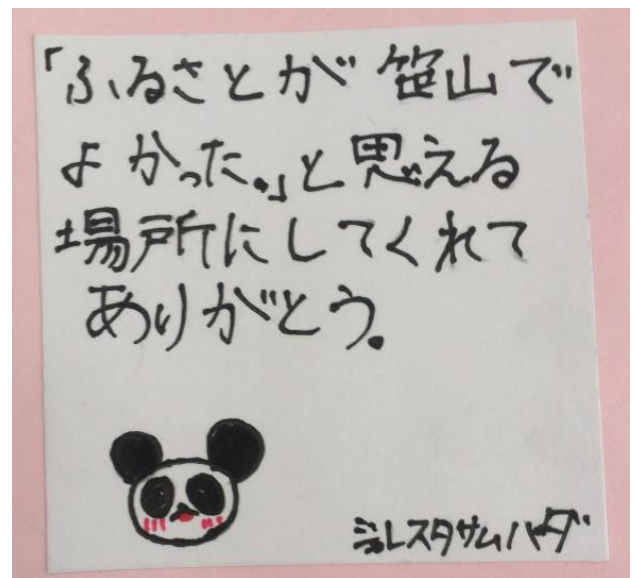 「ふるさとが 笹山で
よかった。」と思える
場所にしてくれて
ありがとう。
シュレスタサムバダ